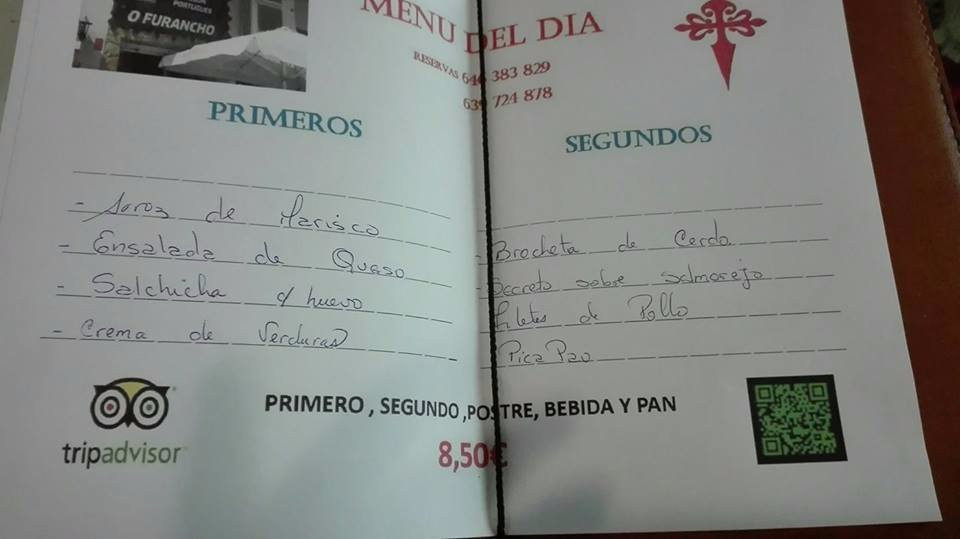 PORTUGUES
O FURANCHO
MENU DEL DIA
RESERVAS 646 383 829
639 724 878
PRIMEROS
- Arroz de Marisco
- Ensalada de Queso
- Salchicha c/ huevo
- Crema de Verduras
SEGUNDOS
- Brocheta de Cerdo
- Secreto sobre salmorejo
- Filetes de Pollo
Pica Pao
tripadvisor
PRIMERO , SEGUNDO ,POSTRE, BEBIDA Y PAN
8,50€